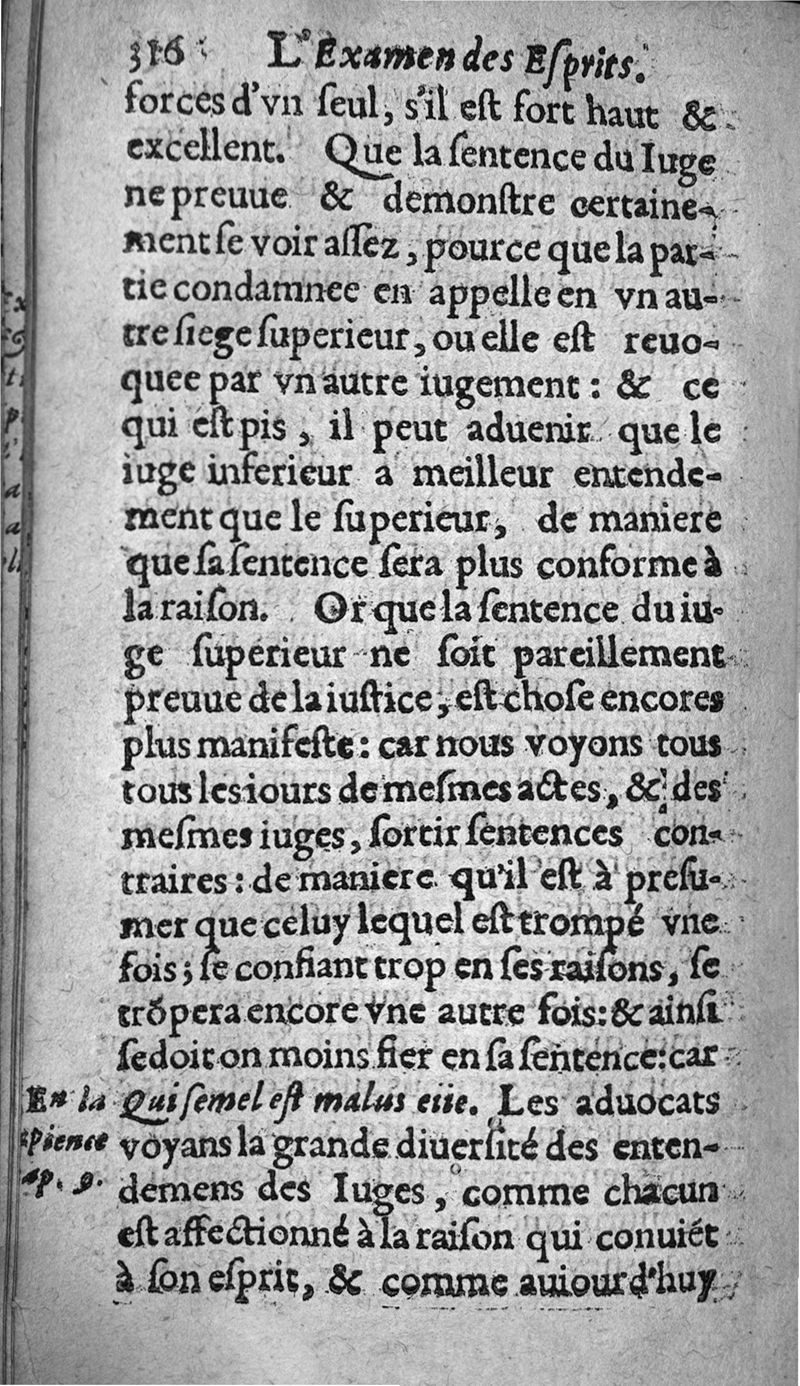 316 L'Examen des Eſprits.
forces d'vn ſeul, s'il eſt fort haut &
excellent. Que la ſentence du Iuge
ne preuue & demonſtre certaine-
ment ſe voir aſſez, pource que la par-
tie condamnee en appelle en vn au-
tre ſiege ſuperieur, ou elle eſt reuo-
quee par vn autre iugement: & ce
qui eſt pis, il peut aduenir que le
iuge inferieur a meilleur entende-
ment que le ſuperieur, de maniere
que ſa ſentence ſera plus conforme à
la raiſon. Or que la ſentence du iu-
ge ſuperieur ne ſoit pareillement
preuue de la iuſtice, eſt choſe encores
plus manifeſte: car nous voyons tous
tous les iours de meſmes actes, & des
meſmes iuges, ſortir ſentences con-
traires: de maniere qu'il eſt à preſu-
mer que celuy lequel eſt trompé vne
fois; ſe confiant trop en ſes raiſons, ſe
trõpera encore vne autre fois: & ainſi
ſe doit on moins fier en ſa ſentence: car
En la Qui ſemel eſt malus etic. Les aduocats
pience voyans la grande diuerſité des enten-
ap. 9. demens des Iuges, comme chacun
eſt affectionné à la raiſon qui conuiét
à ſon eſprit, & comme auiourd'huy